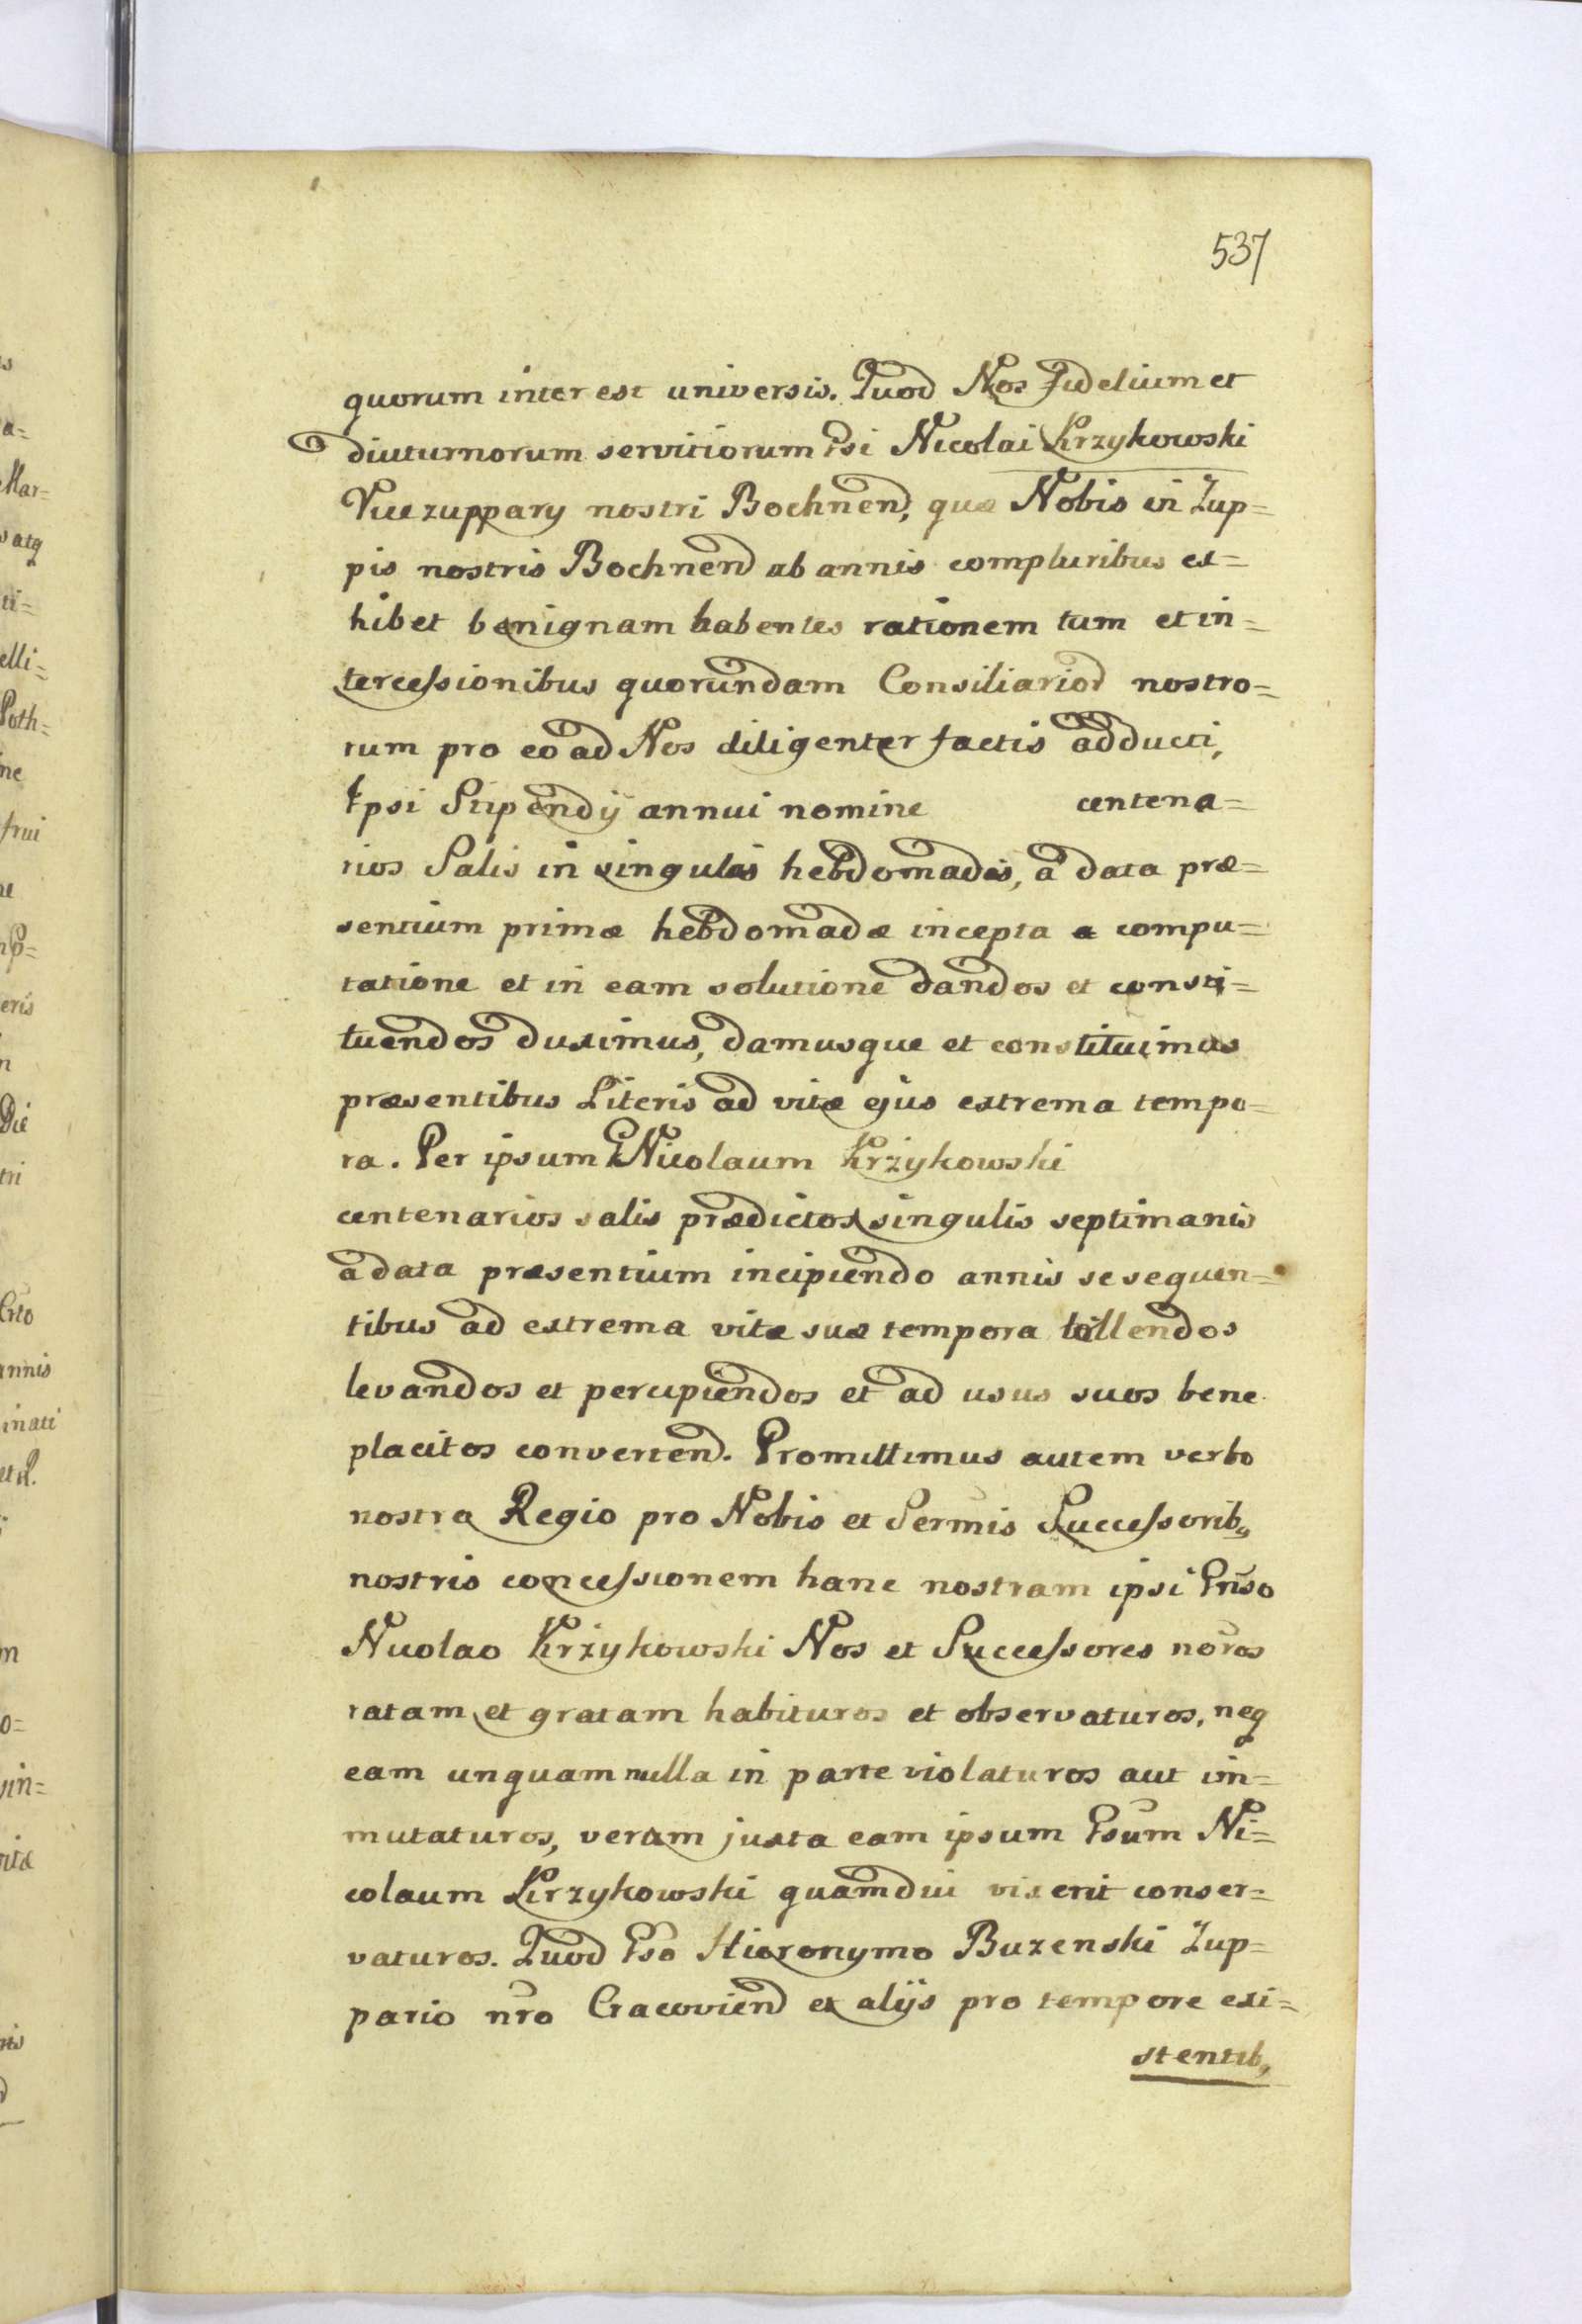 537
quorum interest universis. Quod Nos Fidelium et
diuturnorum servitiorum Gsi Nicolai Krzykowski
Vicezuppary nostri Bochnen, quæ Nobis in Zup=
pis nostris Bochnen ab annis compluribus ex=
hibet benignam habentes rationem tum et in=
tercessionibus quorundam Consiliarior nostro=
rum pro eo ad Nos diligenter factis adducti,
Ipsi Stipendij annui nomine centena=
rios Salis in singulas hebdomadas, a data præ=
sentium primæ hebdomadæ incepta a compu=
tatione et in eam solutione dandos et consti=
tuendos duximus, damusque et constituimus
præsentibus Literis ad vitæ ejus extrema tempo=
ra. Per ipsum G Nicolaum Krzykowski
centenarios salis prædictos singulis septimanis
a data præsentium incipiendo annis se sequen=
tibus ad extrema vitæ suæ tempora tollendos
levandos et percipiendos et ad usus suos bene
placitos converten. Promittimus autem verbo
nostro Regio pro Nobis et Sermis Successorib,
nostris concessionem hanc nostram ipsi Gnso
Nicolao Krzykowski Nos et Successores noros
ratam et gratam habituros et observaturos, neq
eam unquam nulla in parte violaturos aut im=
mutaturos, verum juxta eam ipsum Gsum Ni=
colaum Krzykowski quamdiu vixerit conser=
vaturos. Quod Gso Hieronymo Buzenski Zup=
pario nro Cracovien et alijs pro tempore exi=
stentib,